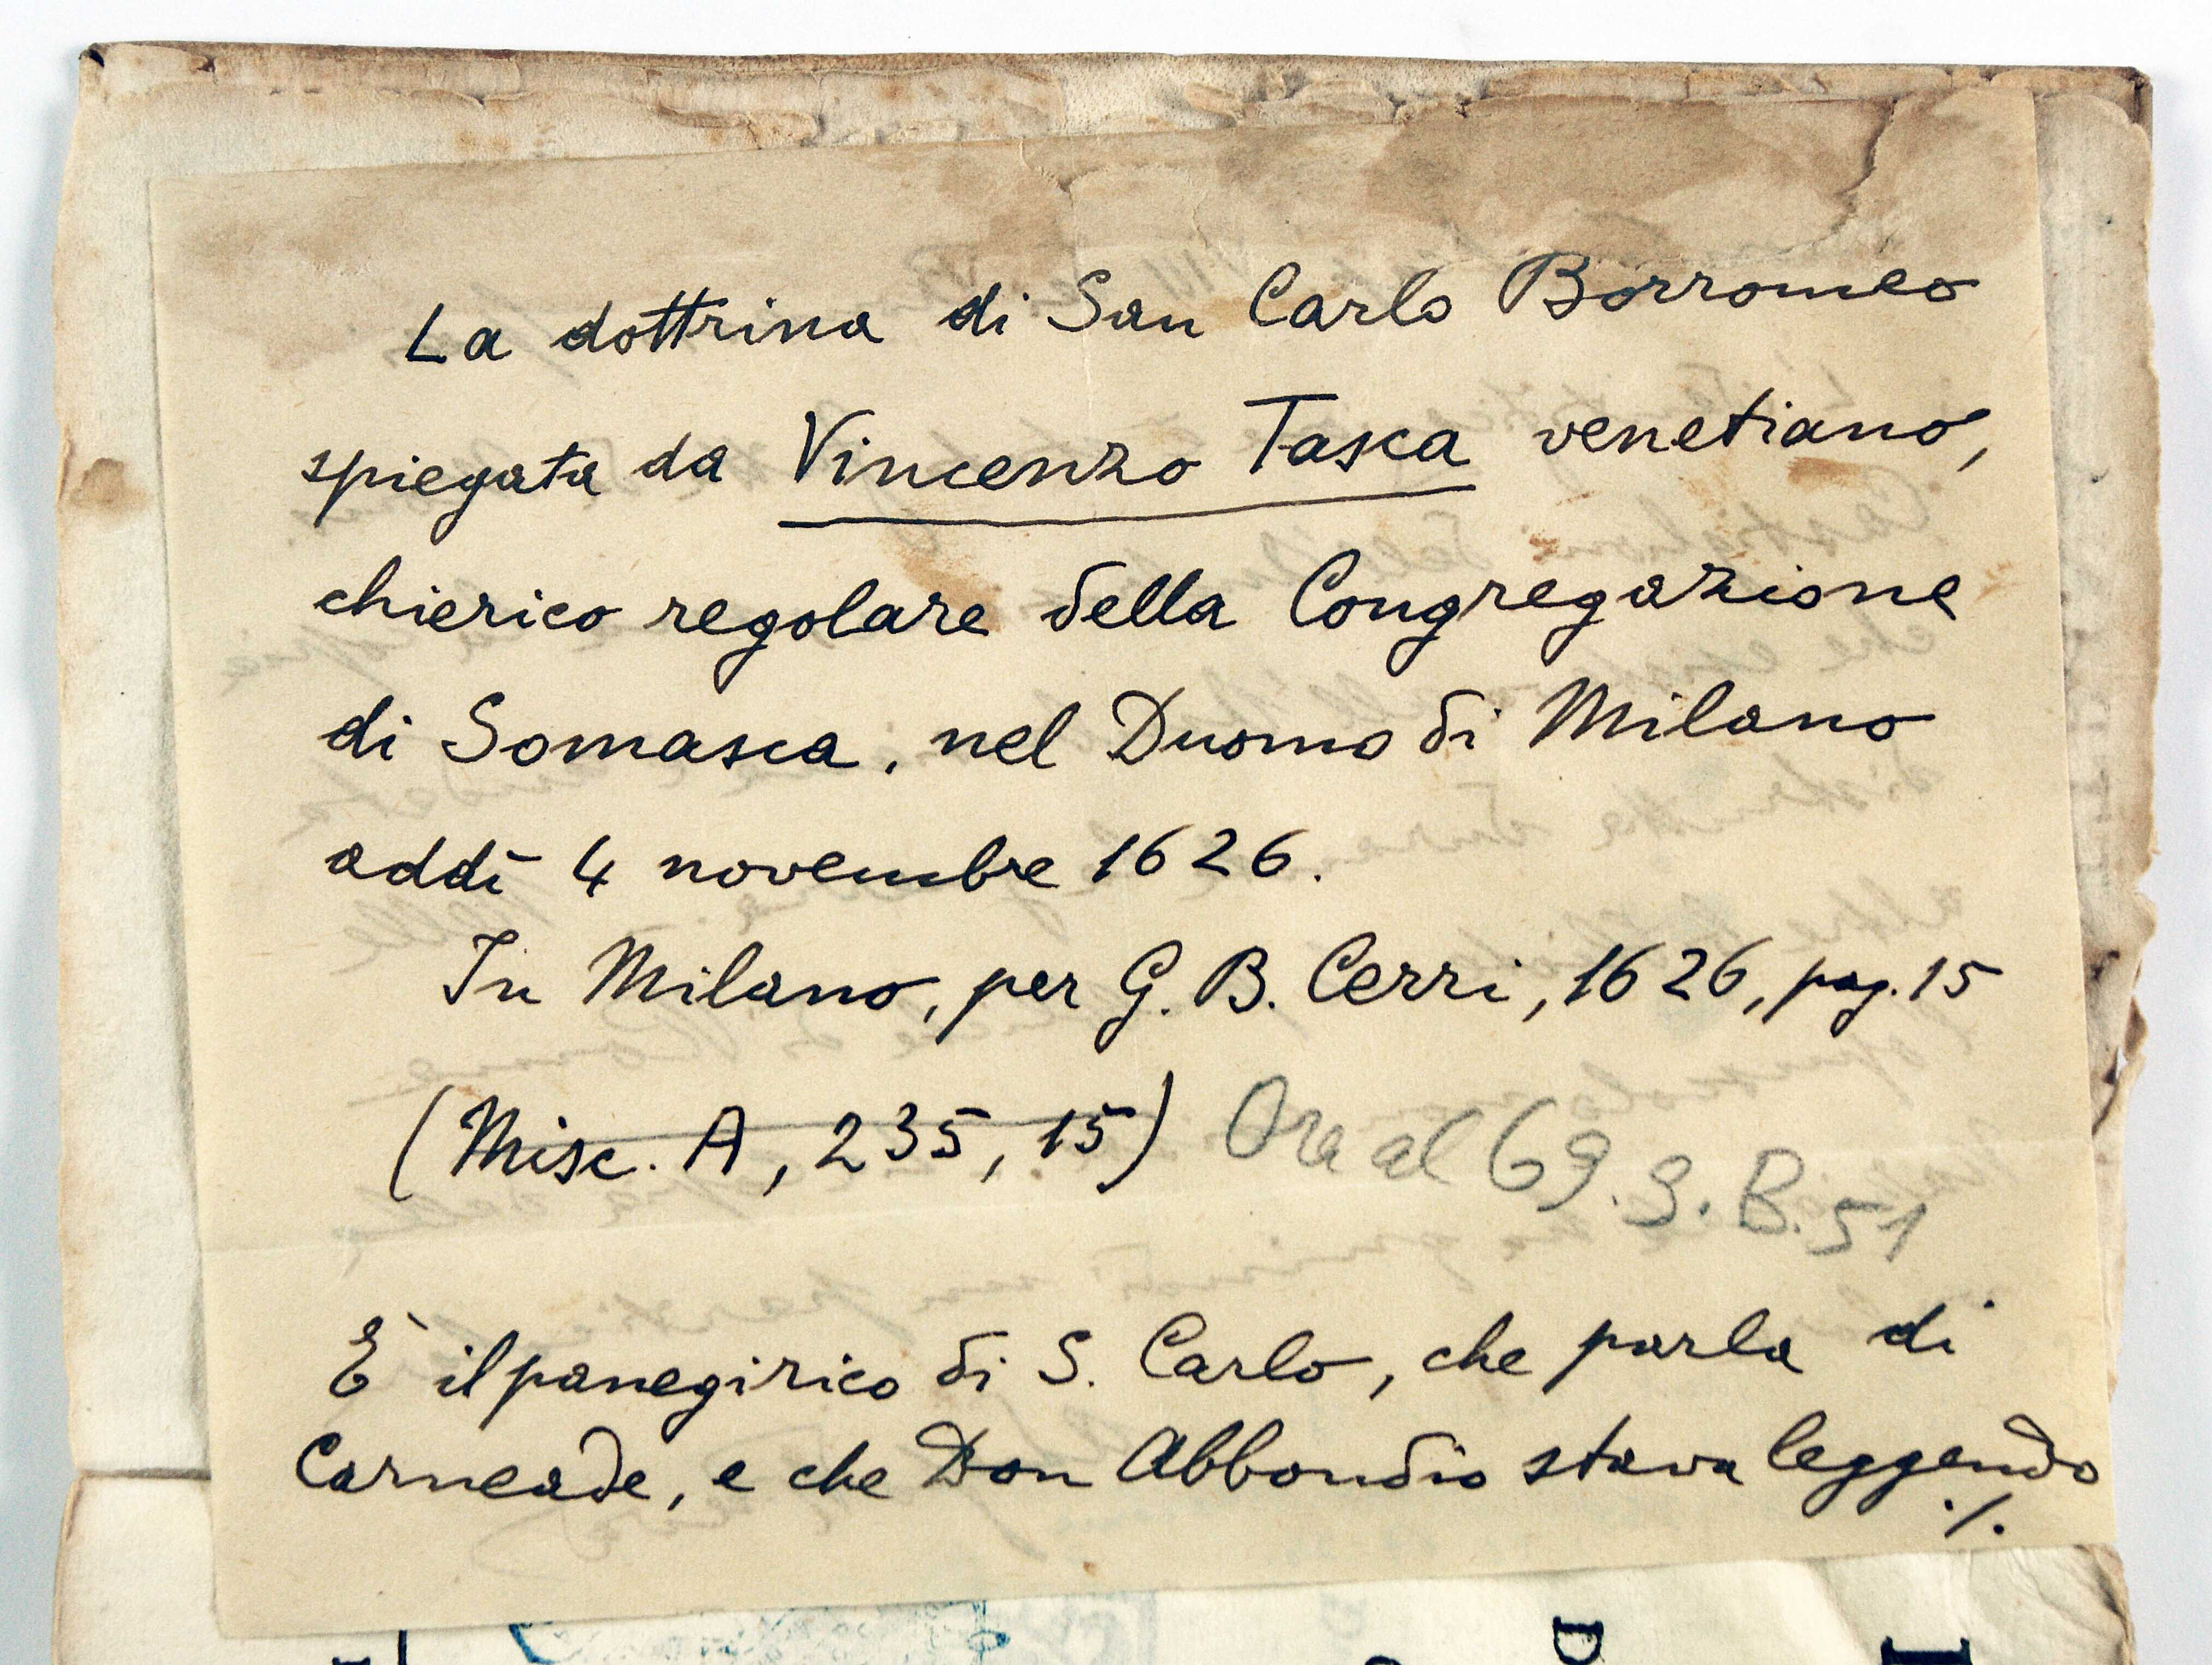 La dottrina di San Carlo Borromeo
spiegata da Vincenzo Tasca venetiano,
chierico regolare della Congregazione
di Somasca, nel Duomo di Milano
addì 4 novembre 1626.
In Milano, per G. B. Cerri, 1626, pag. 15
(Misc. A, 235, 15) Ora al 69.9.B.51
È il panegirico di S. Carlo, che parla di
Carneade, e che Don Abbondio stava leggendo
./.